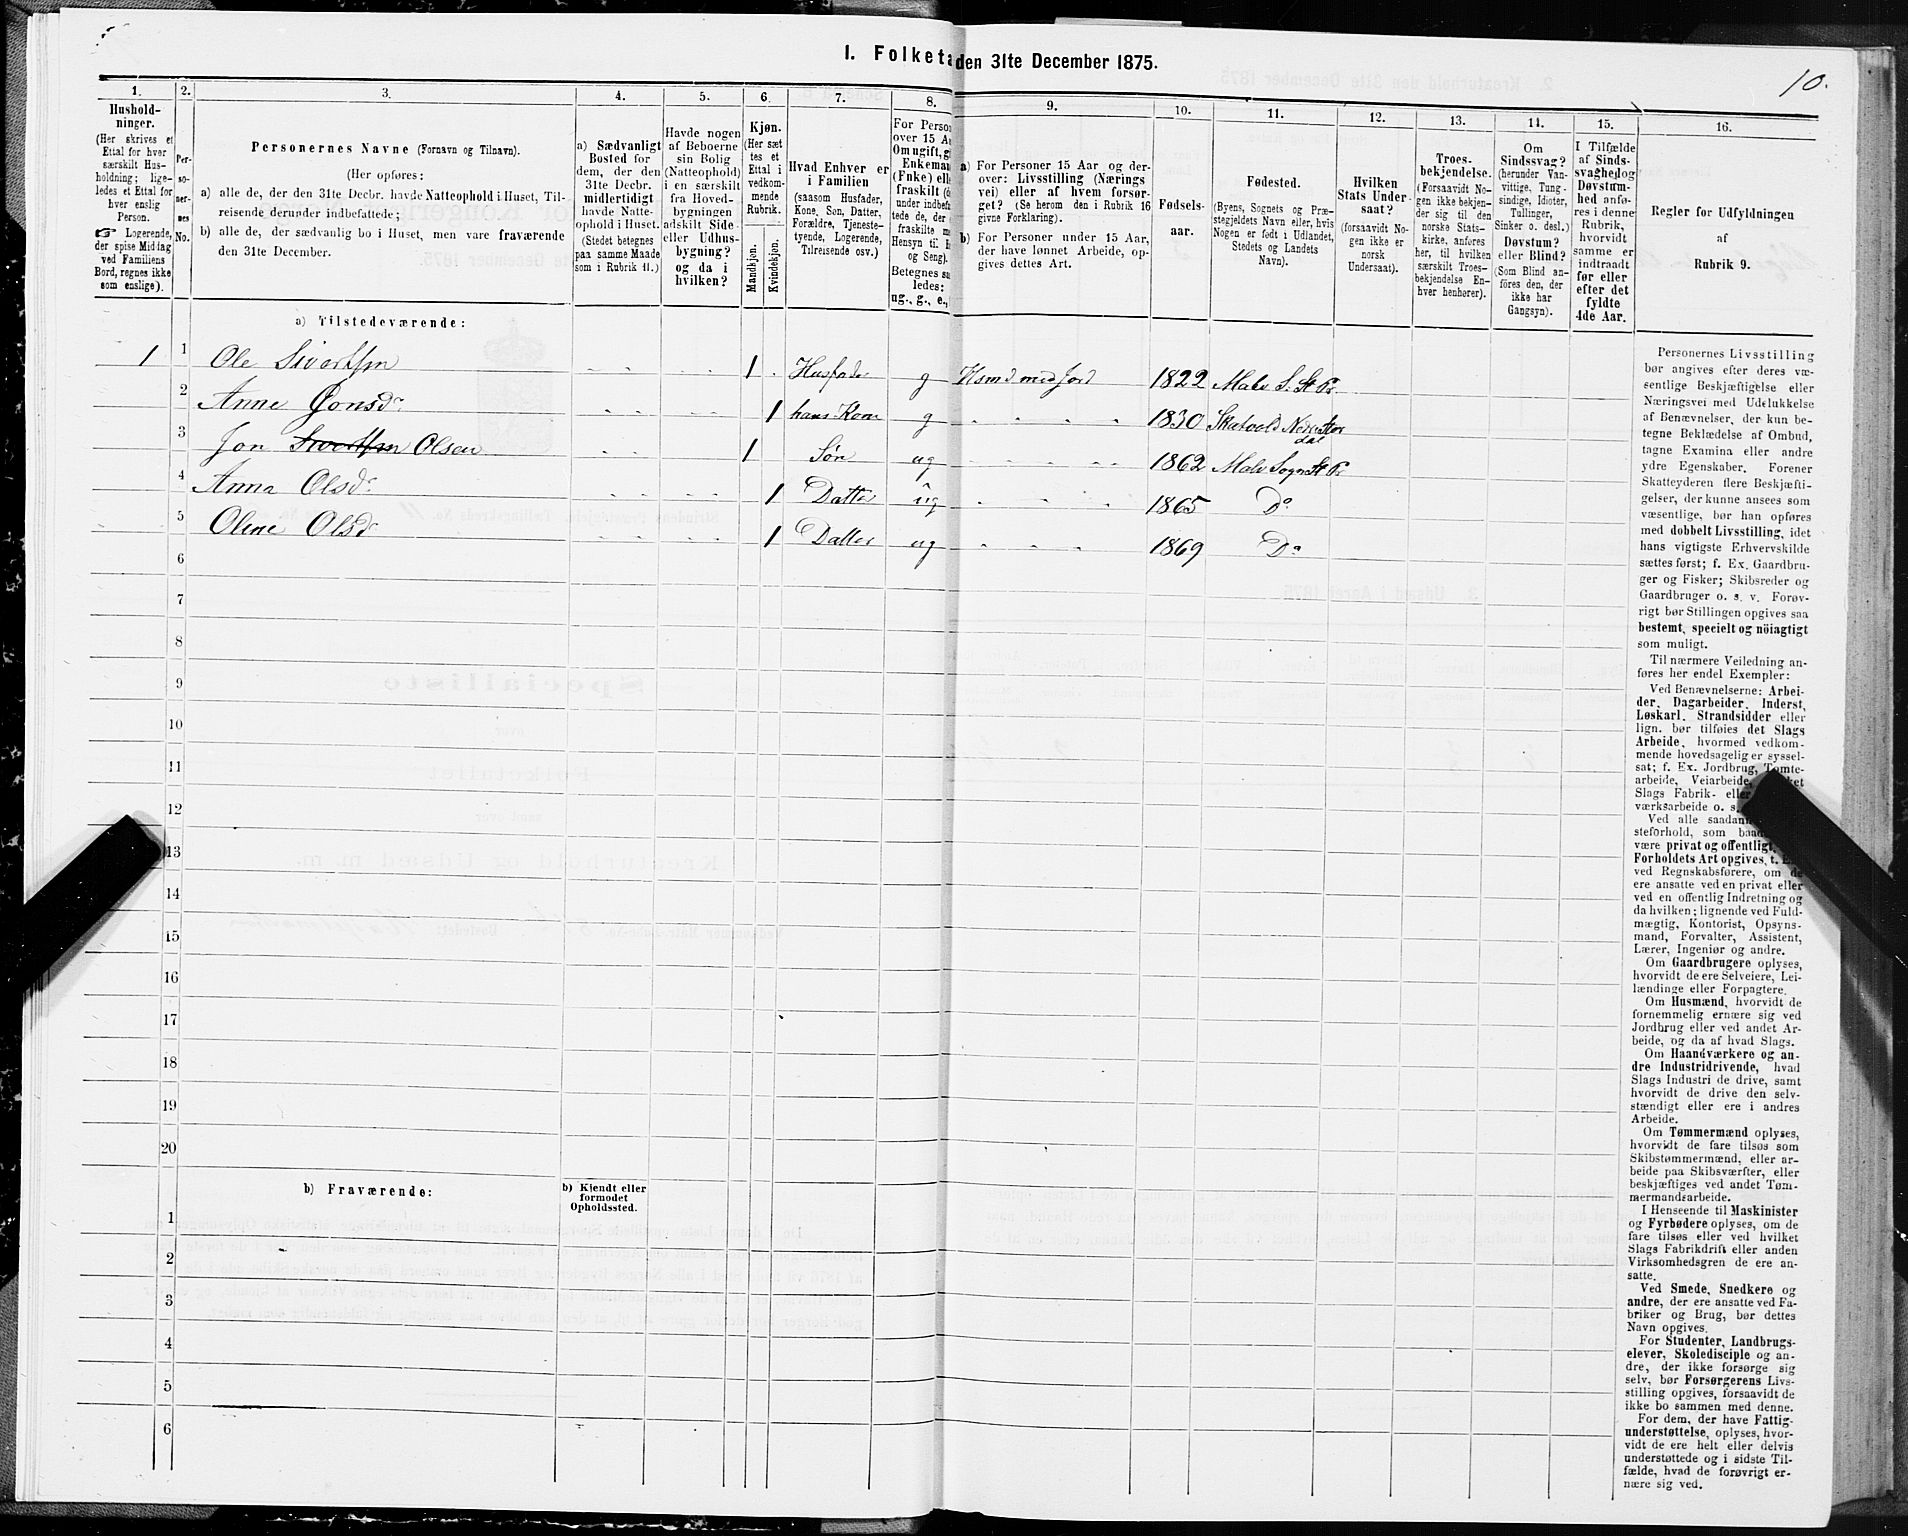 I. Folketa den 31te December 1875.
10.
1. 2. 3. 4. 5. 6. 7. 8. 9. 10. 11. 12. 13. 14. 15. 16.
Hushold-
ninger.
(Her skrives et
Ettal for hver
særskilt Hus-
holdning; lige-
ledes et Ettal for
hver enslig
Person.
☞ Logerende,
der spise Middag
ved Familiens
Bord, regnes ikke
som enslige).
Per-
so-
ner-
nes
No.
Personernes Navne (Fornavn og Tilnavn).
(Her opføres:
a) alle de, der den 31te Decbr. havde Natteophold i Huset, Til-
reisende derunder indbefattede;
b) alle de, der sædvanlig bo i Huset, men vare fraværende
den 31te December.
a) Sædvanligt
Bosted for
dem, der den
31te Decbr.
midlertidigt
havde Natte-
ophold i Huset.
(Stedet betegnes
paa samme Maade
som i Rubrik 11.)
Havde nogen
af Beboerne
sin Bolig
(Natteophold)
i en særskilt
fra Hoved-
bygningen
adskilt Side-
eller Udhus-
bygning?
og da i
hvilken?
Kjøn.
(Her sæt
tes et
Ettal i
vedkom-
mende
Rubrik.
Mandkjøn.
Kvindekjøn.
Hvad Enhver er
i Familien
(saasom Husfader,
Kone, Søn, Datter,
Forældre, Tjeneste-
tyende, Logerende,
Tilreisende osv.)
For Person
over 15 Aa
Om ugift, g
Enkeman
(Fnke) elle
fraskilt (
under indbefat
tede de, der
fraskilte m
Hensyn til
og Seng).
Betegnes sa
ledes:
ug., g., e.,
a) For Personer 15 Aar og der-
over: Livsstilling (Nærings
vei) eller af hvem forsør-
get? (Se herom den i Rubrik 16
givne Forklaring).
b) For Personer under 15 Aar,
der have lønnet Arbeide, op-
gives dettes Art.
Fødsels-
aar.
Fødested.
(Byens, Sognets og Præ-
stegjeldets Navn eller, hvis
Nogen er født i Udlandet,
Stedets og Landets
Navn).
Hvilken
Stats Under-
saat?
(forsaavidt No-
gen ikke er
norsk
Undersaat).
Troes-
bekjendelse.
(Forsaavidt No-
gen ikke bekjen-
der sig til den
norske Stats-
kirke, anføres
her, til hvilken
særskilt Troes-
bekjendelse En-
hver henhører).
Om
Sindssvag?
(herunder Van-
vittige, Tung-
sindige, Idioter,
Tullinger,
Sinker o. desl.)
Døvstum?
eller Blind?
(Som Blind an-
føres den, der
ikke har
Gangsyn).
I Tilfælde
af Sinds-
svaghed og
Døvstum-
hed anfø-
res i denne
Rubrik,
hvorvidt
samme er
indtraadt
før eller
efter det
fyldte
4de Aar.
Regler for Udfyldningen
af
Rubrik 9.
a) Tilstedeværende:
1 1 Ole Sivertsen 1 Husfader g Husmd med Jord 1822 Malv S. St Pr.
2 Anne Jonsdr. 1 hans Kone g 1830 Skatvold Nedre Stor
dal
3 Jon Sivertsen Olsen 1 Søn ug 1862 Malv Sogn St Pr
4 Anna Olsdr. 1 Datter ug 1865 Do
5 Oline Olsdr 1 Datter ug 1869 Do
6
7
8
9
10
11
12
13
14
15
16
17
18
19
20
b) Fraværende:
b) Kjendt eller
formodet
Opholdssted.
1
2
3
4
5
6
Personernes Livsstilling
bør angives efter deres væ-
sentlige Beskjæftigelse eller
Næringsvei med Udelukkelse
af Benævnelser, der kun be-
tegne Beklædelse af Ombud,
tagne Examina eller andre
ydre Egenskaber. Forener
Skatteyderen flere Beskjæfti-
gelser, der kunne ansees som
væsentlige, bør han opføres
med dobbelt Livsstilling, idet
hans vigtigste Erhvervskilde
sættes først; f. Ex. Gaardbru-
ger og Fisker; Skibsreder og
Gaardbruger o. s. v. Forøv-
rigt bør Stillingen opgives saa
bestemt, specielt og nöiagtigt
som muligt.
Til nærmere Veiledning an-
føres her endel Exempler:
Ved Benævnelserne: Arbei-
der, Dagarbeider, Inderst,
Løskarl, Strandsidder eller
lign. bør tilføies det Slags
Arbeide, hvormed vedkom-
mende hovedsagelig er syssel-
sat; f. Ex. Jordbrug, Tomte-
arbeide, Veiarbeide, ket
Slags Fabrik- elle
værksarbeide o. s.
Ved alle saadan
steforhold, som baa
være privat og offentligt,
Forholdets Art opgives, t. E
ved Regnskabsførere, om de
ere ansatte ved en privat eller
ved en offentlig Indretning og
da hvilken; lignende ved Fuld-
mægtig, Kontorist, Opsyns-
mand, Forvalter, Assistent,
Lærer, Ingeniør og andre.
Om Gaardbrugere oplyses,
hvorvidt de ere Selveiere, Lei-
lændinge eller Forpagtere.
Om Husmænd, hvorvidt de
fornemmelig ernære sig ved
Jordbrug eller ved andet Ar-
beide, og da af hvad Slags.
Om Haandværkere og an-
dre Industridrivende, hvad
Slags Industri de drive, samt
hvorvidt de drive den selv-
stændigt eller ere i andres
Arbeide.
Om Tømmermænd oplyses,
hvorvidt de fare tilsøs som
Skibstømmermænd, eller ar-
beide paa Skibsværfter, eller
beskjæftiges ved andet Tøm-
mermandsarbeide.
I Henseende til Maskinister
og Fyrbødere oplyses, om de
fare tilsøs eller ved hvilket
Slags Fabrikdrift eller anden
Virksomhedsgren de ere an-
satte.
Ved Smede, Snedkere og
andre, der ere ansatte ved Fa-
briker og Brug, bør dettes
Navn opgives.
For Studenter, Landbrugs-
elever, Skoledisciple og an-
dre, der ikke forsørge sig
selv, bør Forsørgerens Livs-
stilling opgives, forsaavidt de
ikke bo sammen med denne.
For dem, der have Fattig-
understøttelse, oplyses, hvor-
vidt de ere helt eller delvis
understøttede og i sidste Til-
fælde, hvad de forøvrigt er-
nære sig ved.